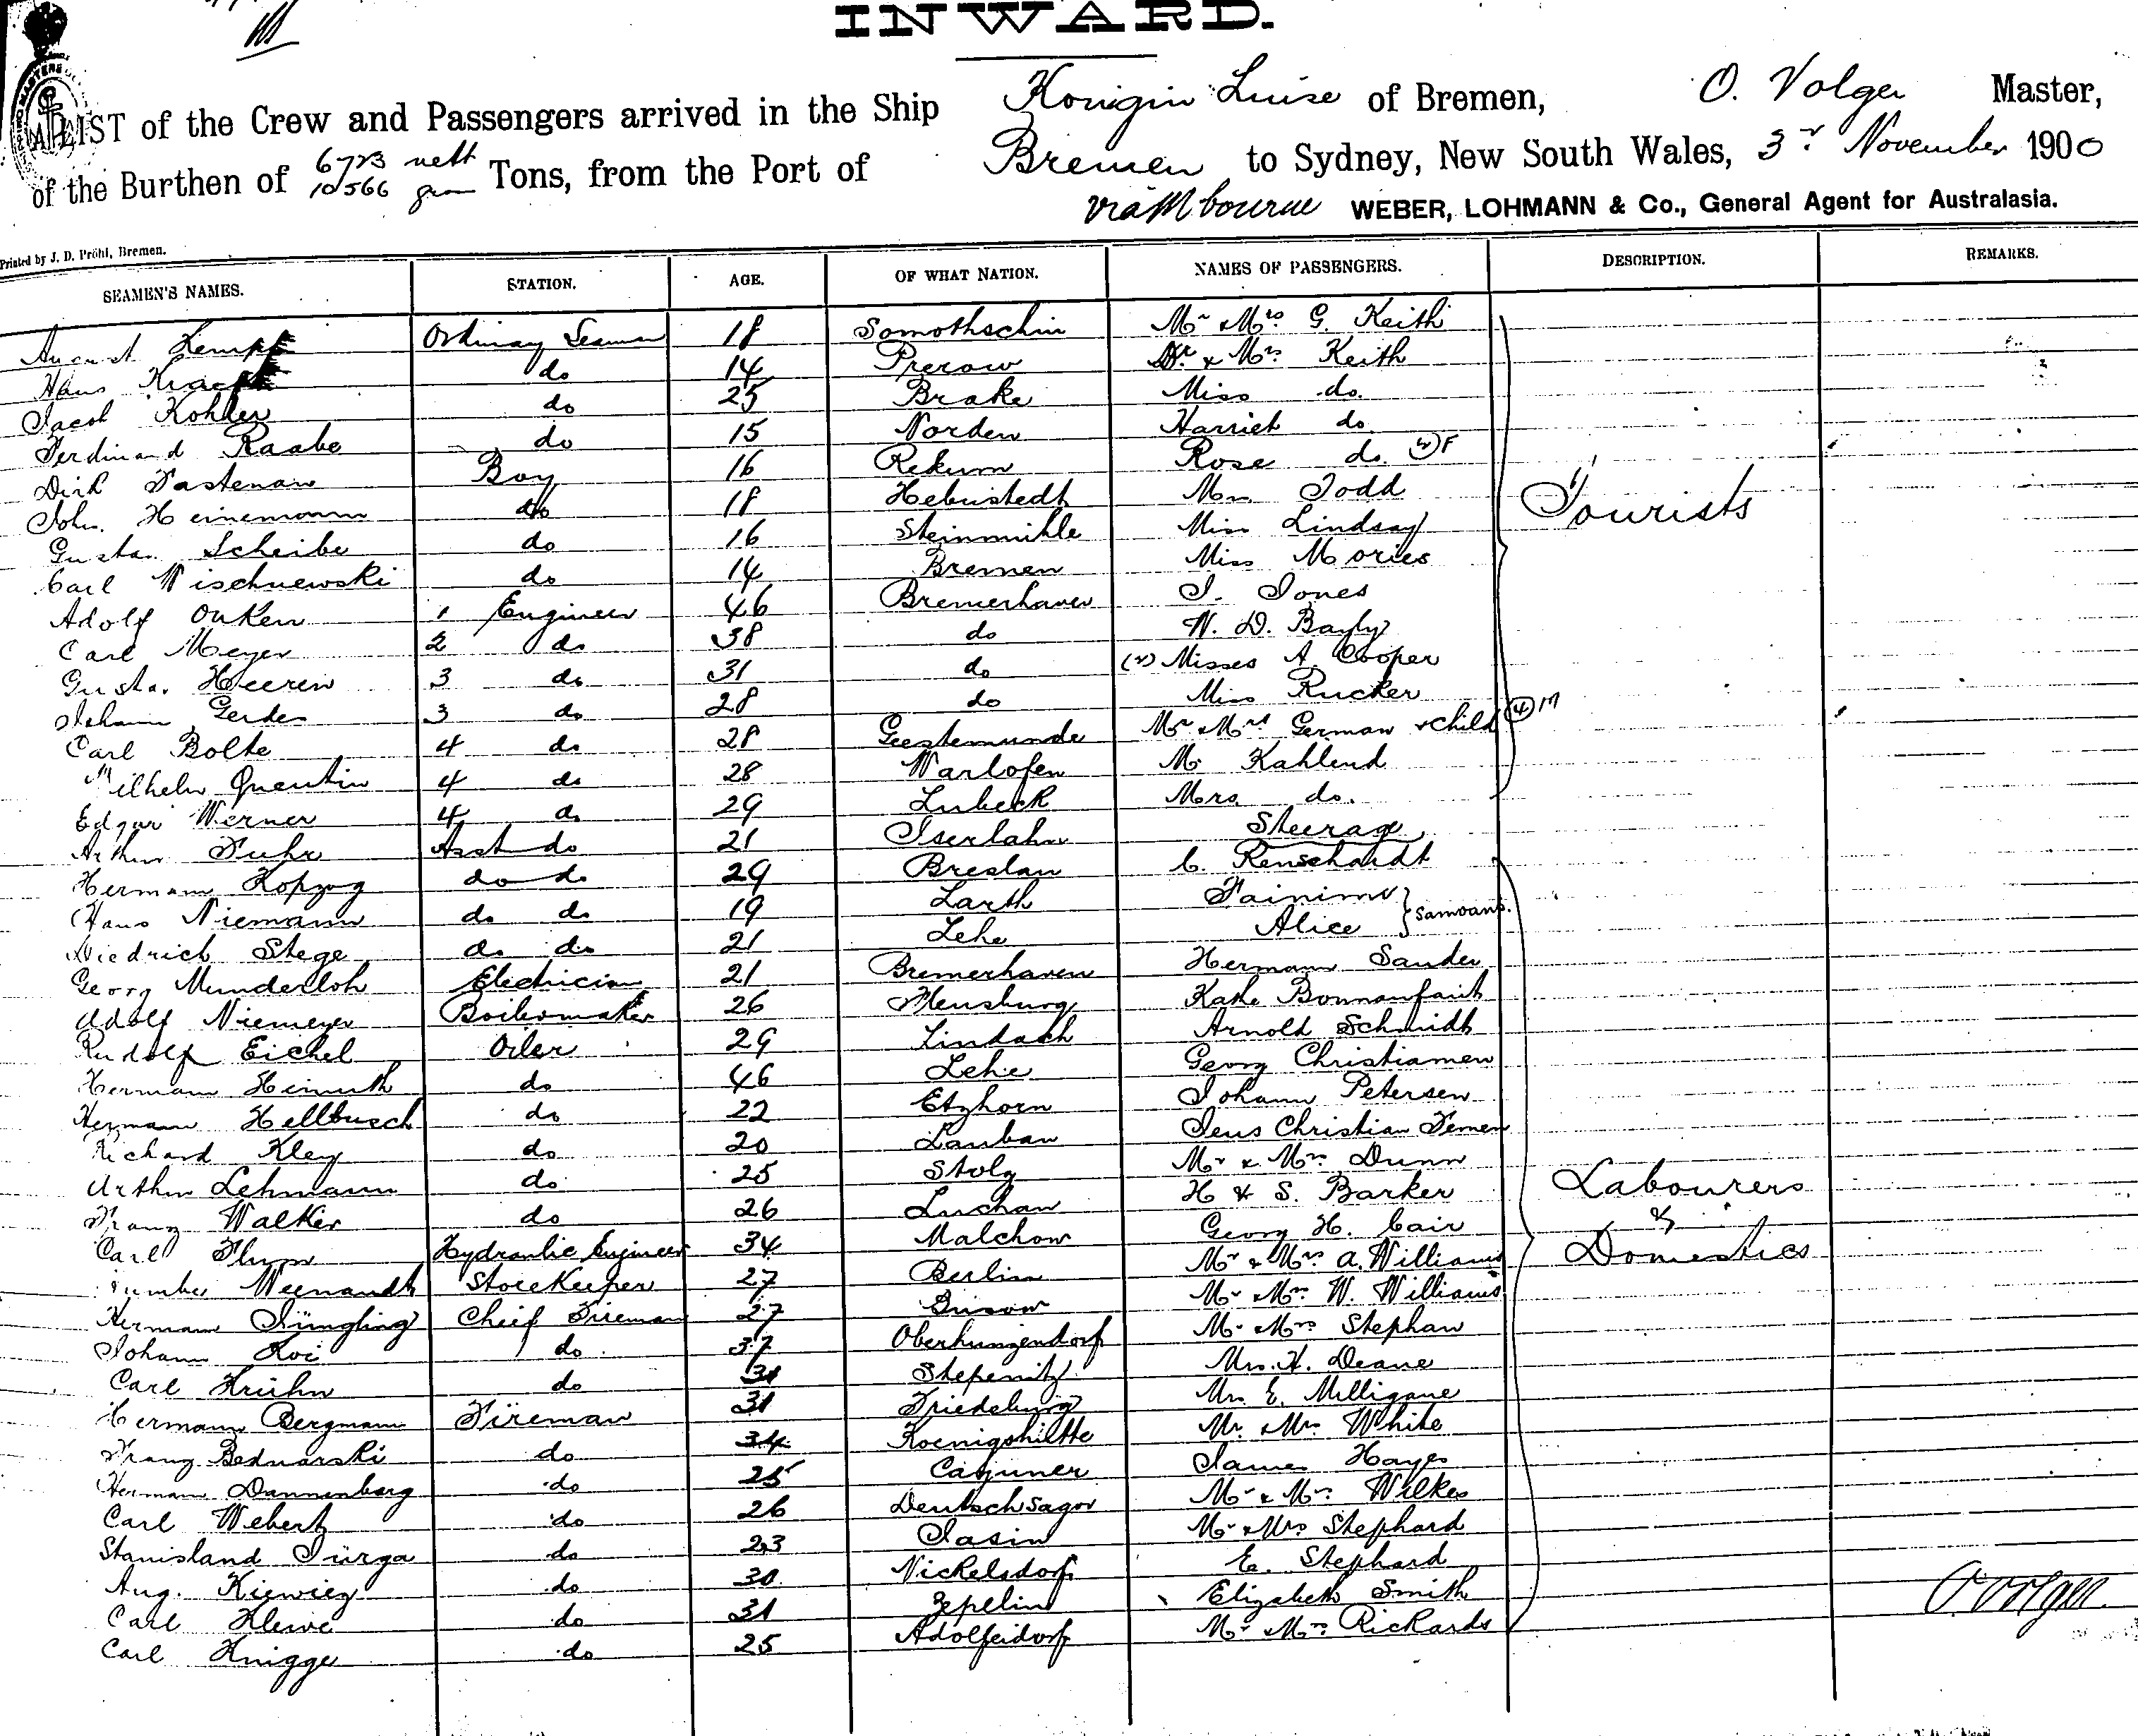 INWARD.
A LIST of the Crew and Passengers arrived in the Ship Konigin Luise of Bremen, O. Volger Master,
of the Burthen of 6723 nett 10566 Tons, from the Port of Bremen to Sydney, New South Wales, 3r November 1900
via Mbourne WEBER, LOHMANN & Co., General Agent for Australasia.
Printed by J. D. Pröhl, Bremen.
SEAMEN'S NAMES. STATION. AGE. OF WHAT NATION. NAMES OF PASSENGERS. DESCRIPTION. REMARKS.
August Ordinary Seaman 18 Somothschin Mr & Mrs G. Keith
Hans do 14 Prerow Dr & Mrs Keith
Jacob Kohler do 25 Brake Miss do.
Ferdinand Raabe do 15 Norden Harriet do
Dirk Fastenau Boy 16 Rekum Rose do. (2) F
John. Heinemann do 18 Mrs Todd Tourists
Gustav Scheibe do 16 Steinmühle Miss Lindsay
Carl Wischnewski do 14 Bremen Miss Mories
Adolf Onken 1 Engineer 46 Bremerhaven J. Jones
Carl Meyer 2 do 38 do W. D. Bayly
Gusta. Heeren 3 do 31 do (2) Misses A. Cooper
Johann Gerdes 3 do 28 do Miss Rucker
Carl Bolte 4 do 28 Geestemunde Mr & Mrs German & child (4) M
Wilhelm Quentin 4 do 28 Warlofen M. Kahlend
Edgar Werner 4 do 29 Lubeck Mrs do.
Arthur Fuhr Asst do 21 Iserlohn Steerage
Hermann Kopzog do do 29 Breslau C. Renschardt
Hans Niemann do do 19 Larth Fainimo
Diedrich Stege do do 21 Lehe Alice Samoans.
Georg Munderloh Electrician 21 Bremerhaven Hermann Sander
Adolf Niemeyer Boilermaker 26 Flensburg Kathe
Rudolf Eichel Oiler 29 Lindach Arnold Schmidt
Hermann Heinuth do 46 Lehe Georg Christiansen
Hermann Hellbusch do 22 Etzhorn Johann Petersen
Richard Kley do 20 Lauban Jens Christian Femen
Arthur Lehmann do 25 Stolz Mr & Mrs Dunn
Franz Walker do 26 Luchau H & S. Barker Labourers
Carl Flum Hydraulic Engineer 34 Malchow Georg H. Cair &
Weinandt Storekeeper 27 Berlin Mr & Mrs A. Williams Domestics
Hermann Jüngling Chief Fireman 27 Brisow Mr & Mrs W. Williams
Johann Koi do 37 Oberhungendorf Mr & Mrs Stephan
Carl Krühn do 31 Stepenitz Mrs. H. Deane
Hermann Bergmann Fireman 31 Friedeburg Mr. E. Milligane
Franz Bednarski do 34 Koenigshütte Mr. & Mrs White
Hermann Dannenberg do 25 Cajuner James Hayes
Carl Webertz do 26 Deutsch Sagor Mr & Mrs Wilkes
Stanisland Jürga do 23 Jasin Mr & Mrs Stephard
Aug. Kiewiez do 30 Nickelsdorf E. Stephard
Carl Klewe do 31 Zepelin Elizabeth Smith
Carl Knigge do 25 Adolfeidorf Mr & Mrs Rickards
O. Volger.